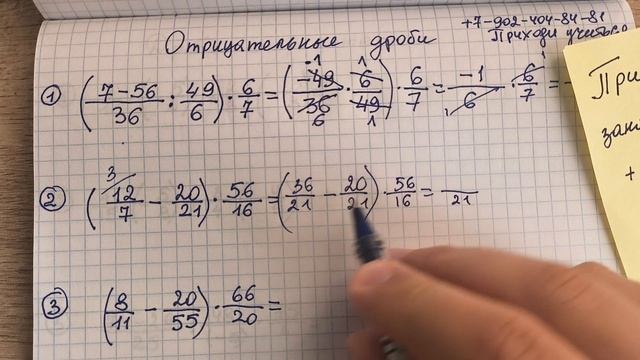 +7-902-404-84-81
Приходи учиться
Отрицательные дроби
① ((7-56)/36 : 49/6) · 6/7 = (-49/36 · 6/49) · 6/7 = -1/6 · 6/7 = -
-1 1 6 1 1 1
② (12/7 - 20/21) · 56/16 = (36/21 - 20/21) · 56/16 = /21
3
③ (8/11 - 20/55) · 66/20 =
При
+